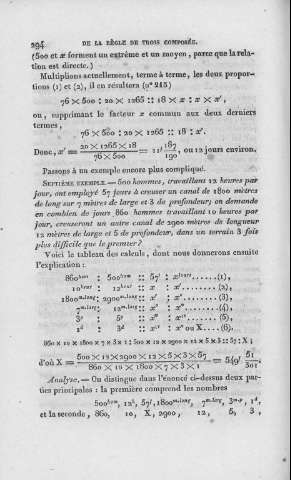 294 DE LA RÈGLE DE TROIS COMPOSÉE.
(500 et x forment un extrême et un moyen, parce que la rela-
tion est directe.)
Multiplions actuellement, terme à terme, les deux propor-
tions (1) et (2), il en résultera (n° 215)
76 × 500 : 20 × 1265 :: 18 × x : x × x',
ou, supprimant le facteur x commun aux deux derniers
termes,
76 × 500 : 20 × 1265 :: 18 : x'.
Donc, x' = 20 × 1265 × 18 / 76 × 500 = 11j 187/190, ou 12 jours environ.
Passons à un exemple encore plus compliqué.
SEPTIÈME EXEMPLE. — 500 hommes, travaillant 12 heures par
jour, ont employé 57 jours à creuser un canal de 1800 mètres
de long sur 7 mètres de large et 3 de profondeur; on demande
en combien de jours 860 hommes travaillant 10 heures par
jour, creuseront un autre canal de 2900 mètres de longueur
12 mètres de large et 5 de profondeur, dans un terrain 3 fois
plus difficile que le premier?
Voici le tableau des calculs, dont nous donnerons ensuite
l'explication :
860hom : 500hom :: 57j : x jours......(1),
10heur : 12heur :: x : x'.......(2),
1800m.long : 2900m.long :: x' : x''.......(3),
7m.larg : 12m.larg :: x'' : x'''.......(4),
3p : 5p :: x''' : xiv.......(5),
1d : 3d :: xiv : xv ou X....(6).
860 × 10 × 1800 × 7 × 3 × 1 : 500 × 12 × 2900 × 12 × 5 × 3 :: 57 : X ;
d'où X = 500 × 12 × 2900 × 12 × 5 × 3 × 57 / 860 × 10 × 1800 × 7 × 3 × 1 = 549j 51/301.
Analyse. — On distingue dans l'énoncé ci-dessus deux par-
ties principales : la première comprend les nombres
500hom, 12h, 57j, 1800m.long, 7m.larg, 3m.p, 1d,
et la seconde, 860, 10, X, 2900, 12, 5, 3,